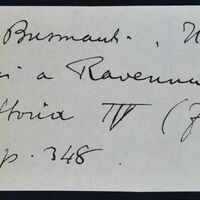 Busmanti.,
i a Ravenna
storia IV (
p. 348